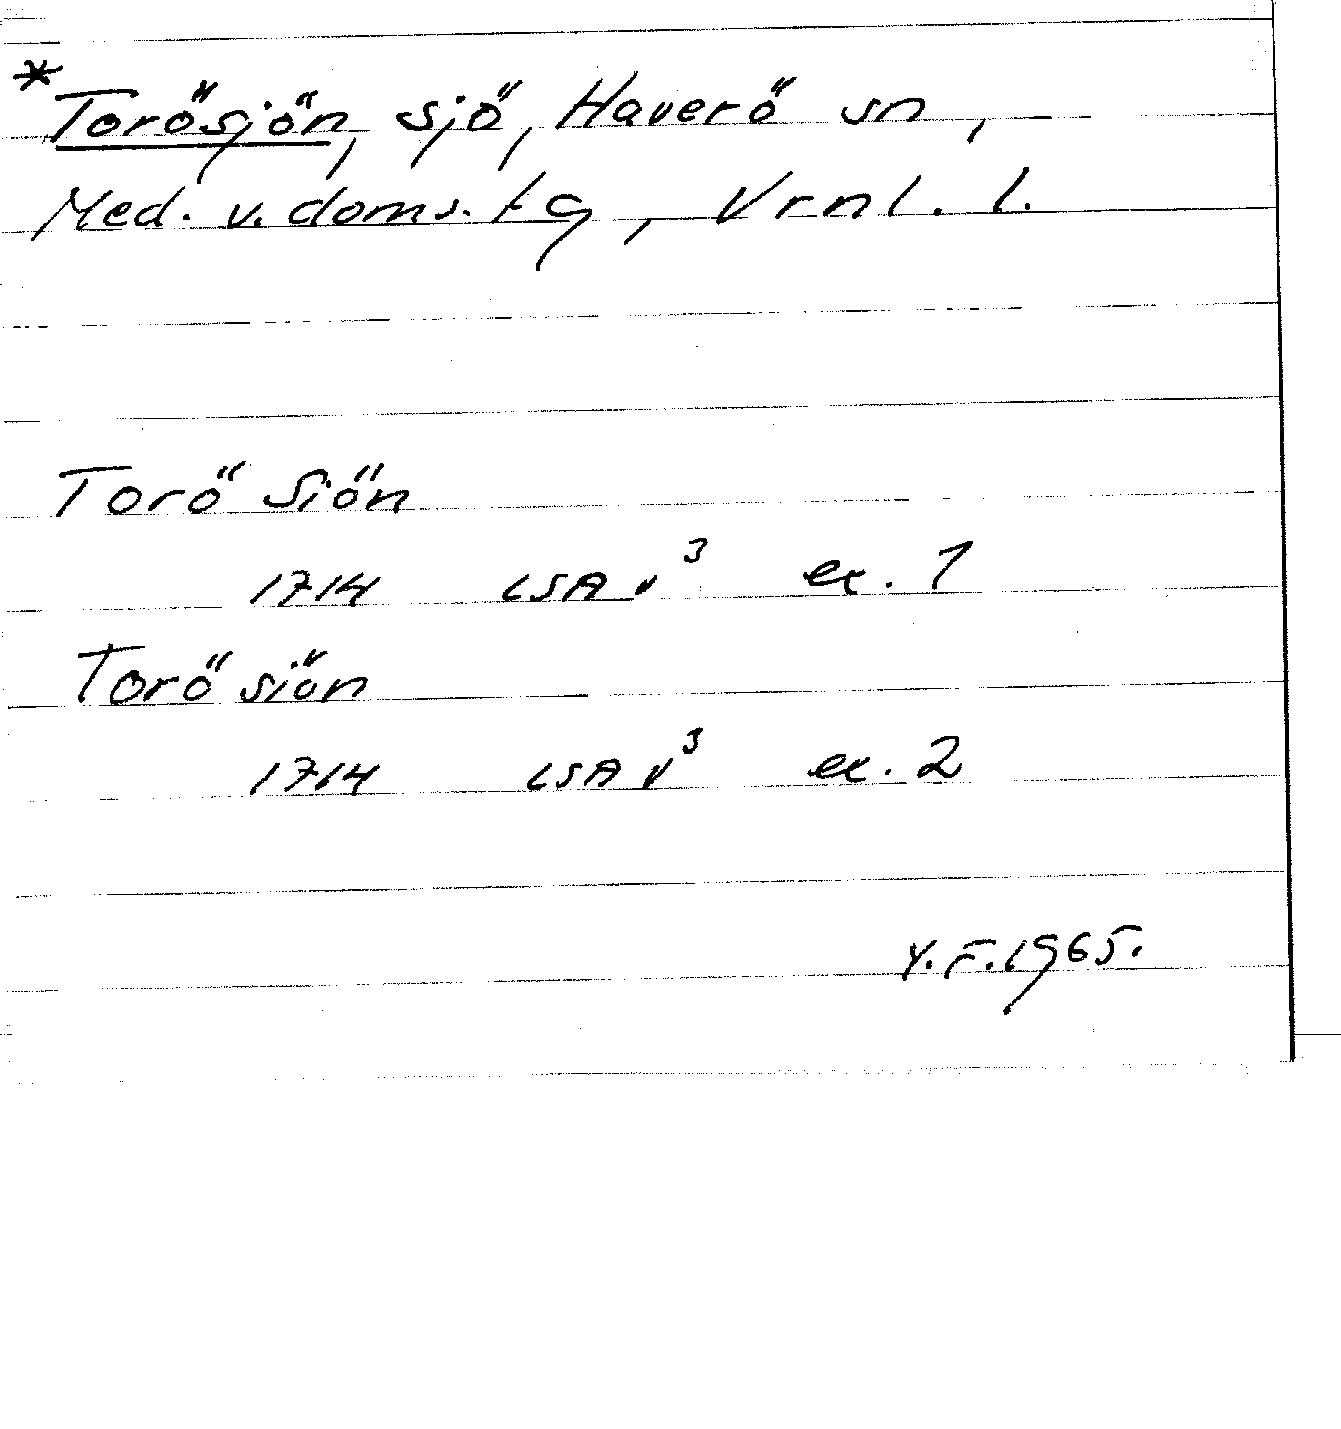 *Torösjön, sjö, Haverö sn,
Med. v. doms. tg, Vrnl. l.
Torö Siön
1714 LSA v³ ex. 1
Torö siön
1714 LSA v³ ex. 2
Y.F. 1965.